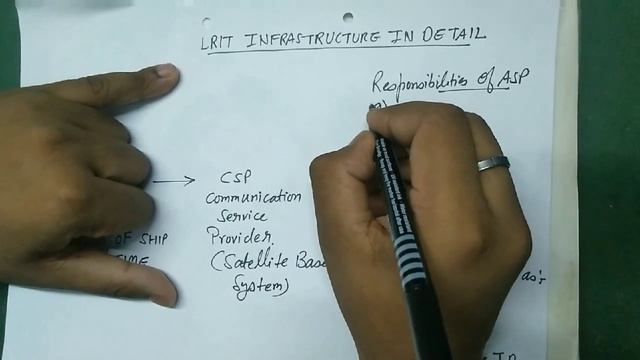 LRIT INFRASTRUCTURE IN DETAIL
Responsibilities of ASP
a)
CSP
Communication
Service
Provider.
(Satellite Base
System)
OF SHIP
TIME
as's